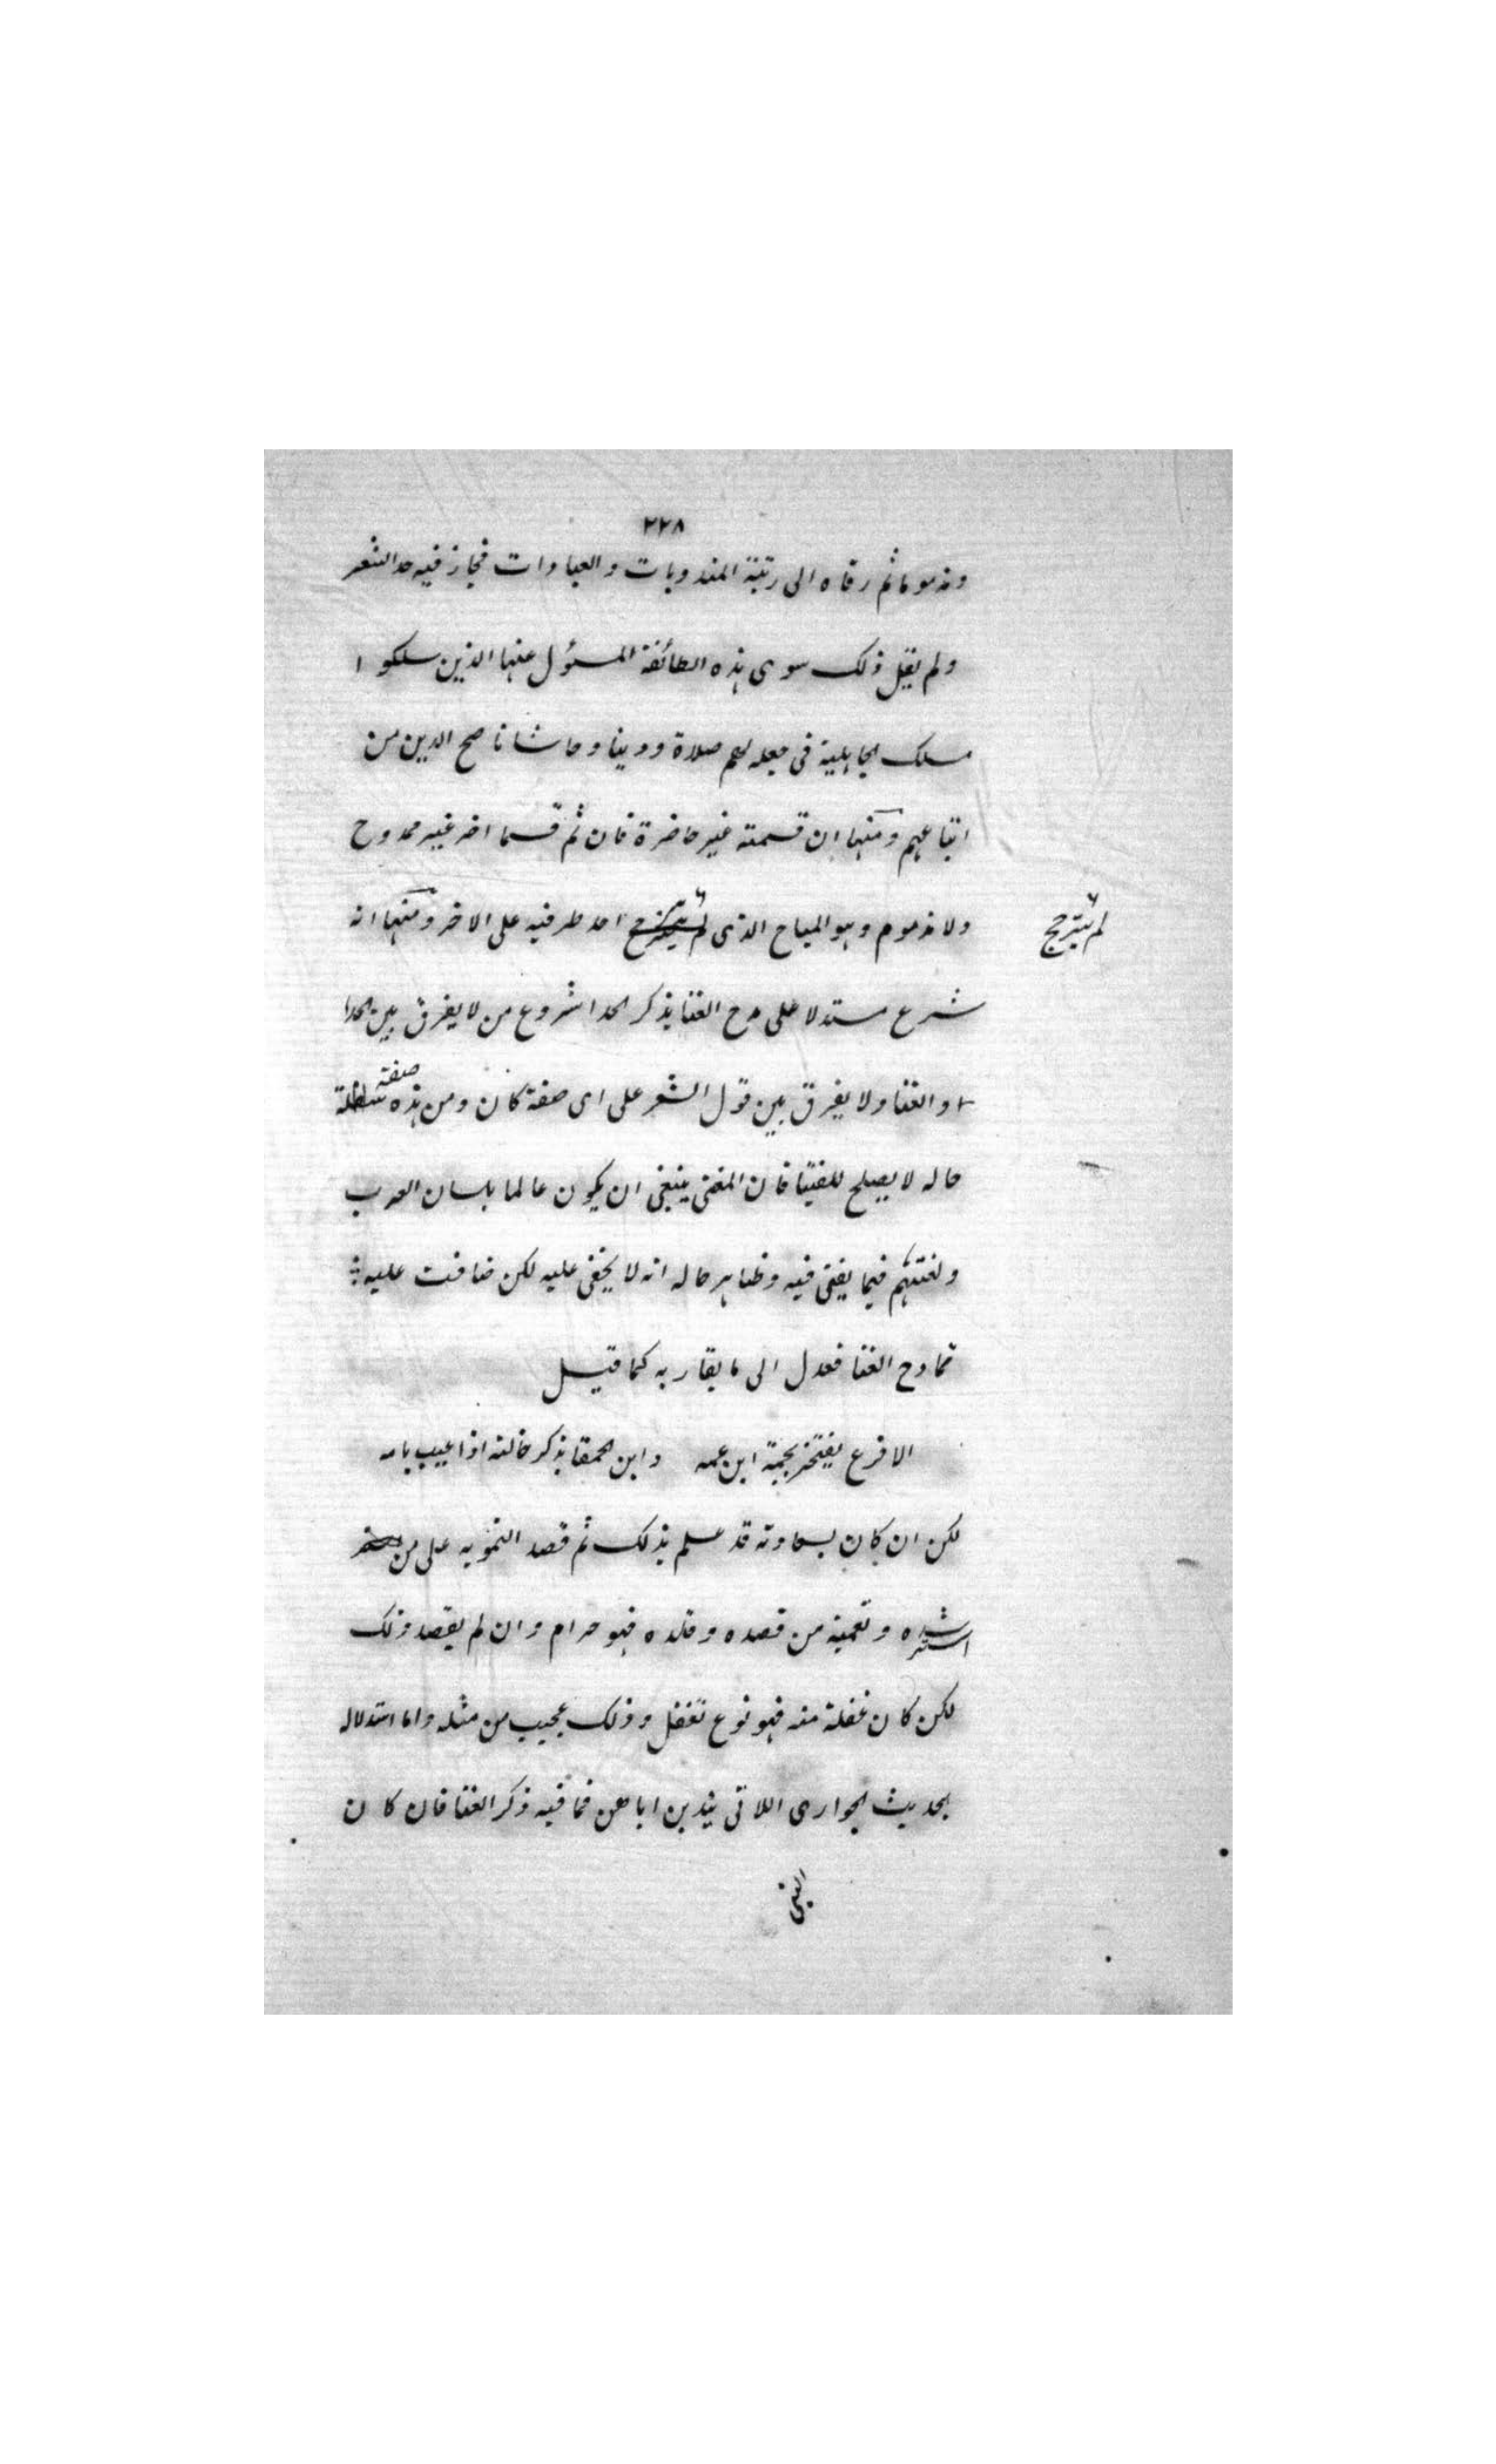 ٢٢٨
ومذموما ثم رقاه الى رتبة المندوبات والعبادات فجاز فيه حد الشعر
ولم يقل ذلك سوى هذه الطائفة المسؤل عنها الذين سلكوا
مسلك الجاهلية فى جعله لهم صلاة ودينا وحاشا ناصح الدين من
اتباعهم ومنها ان قسمته غير حاضرة فان ثم قسما اخر غير ممدوح
ولا مذموم وهو المباح الذى لم يترجح احد طرفيه على الاخر ومنها انه
لم يترجح
شرع مستدلا على مدح الغنا بذكر الحدا شروع من لا يفرق بين الحدا
والغنا ولا يفرق بين قول الشعر على اى صفة كان ومن هذه صفة
حاله لا يصلح للفتيا فان المفتى ينبغى ان يكون عالما بلسان العرب
ولغتهم فيما يفتى فيه وظاهر حاله انه لا يخفى عليه لكن ضاقت عليه
تمادح الغنا فعدل الى ما يقاربه كما قيل
الاقرع يفتخر بجمة ابن عمه وابن الحمقا يذكر خالته اذا عيب بامه
لكن ان كان بسعادته قد علم بذلك ثم قصد التمويه على من
استرشده وتعمية من قصده وقلده فهو حرام وان لم يقصد ذلك
لكن كان غفلة منه فهو نوع تغفل وذلك عجيب من مثله واما استدلاله
بحديث الجوارى اللاتى يندبن اباهن فما فيه ذكر الغنا فان كان